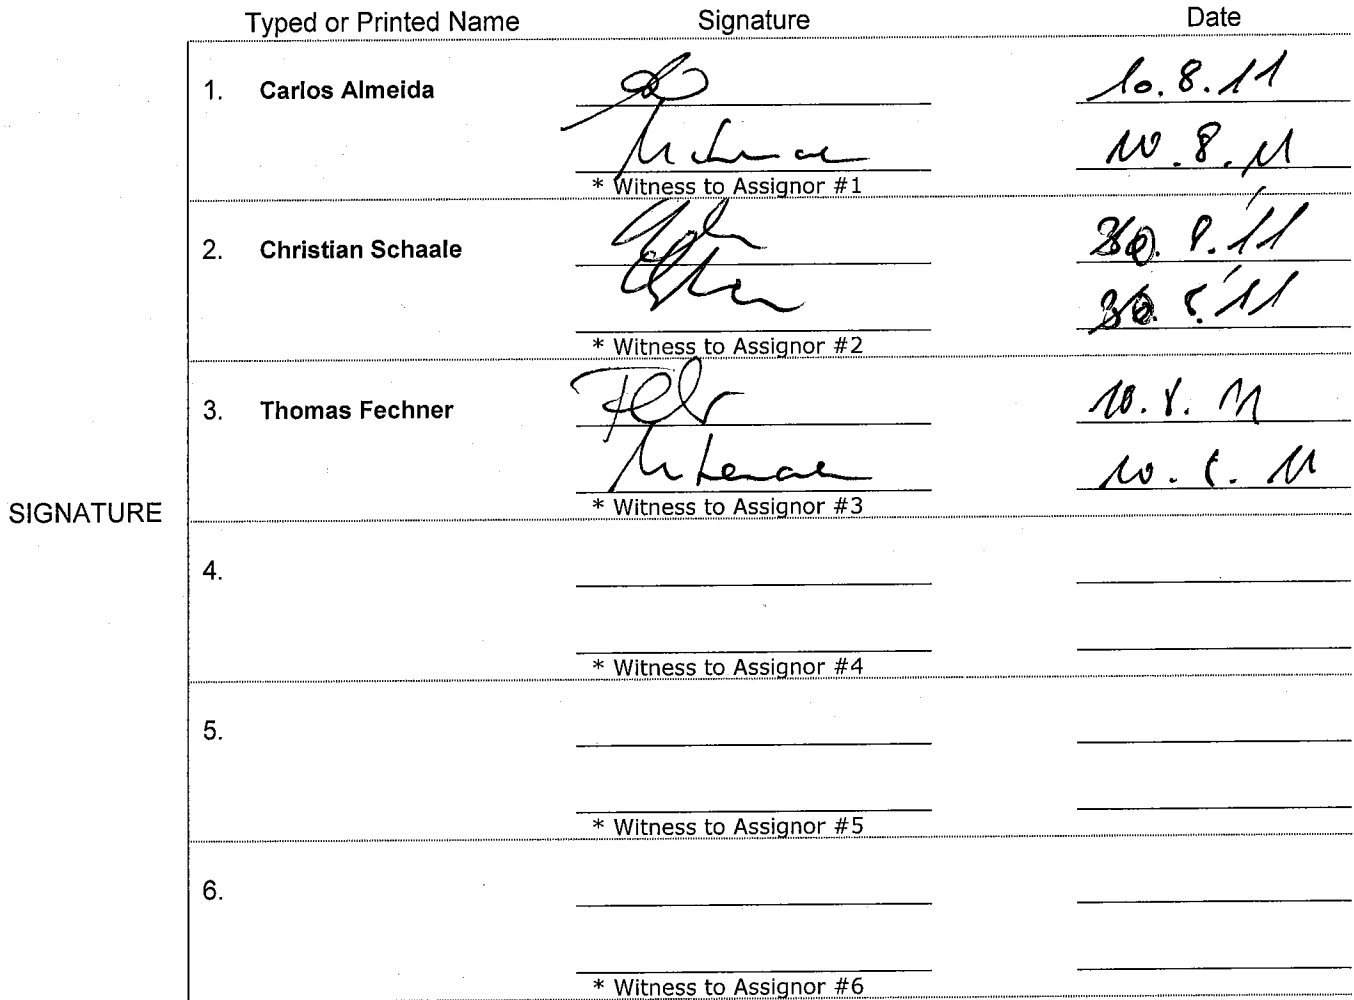 Typed or Printed Name Signature Date
1. Carlos Almeida 10.8.11
10.8.11
* Witness to Assignor #1
2. Christian Schaale
* Witness to Assignor #2
3. Thomas Fechner 10.8.11
10.8.11
* Witness to Assignor #3
SIGNATURE
4.
* Witness to Assignor #4
5.
* Witness to Assignor #5
6.
* Witness to Assignor #6